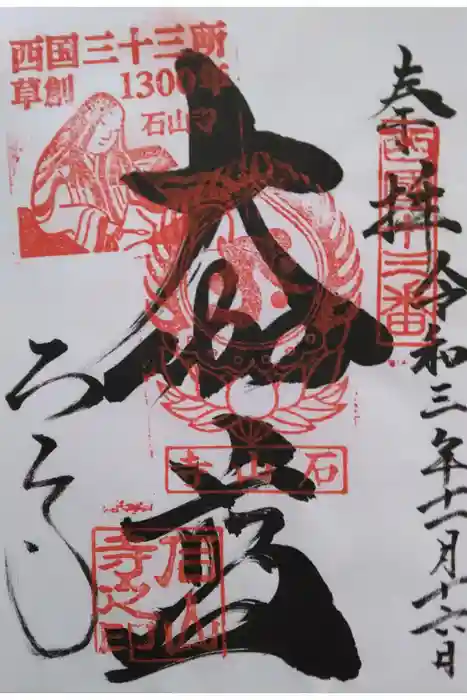 奉拝
令和三年十一月十六日
西国十三番
大
西国三十三所
草創 1300年
石山寺
石山寺
石山寺之印